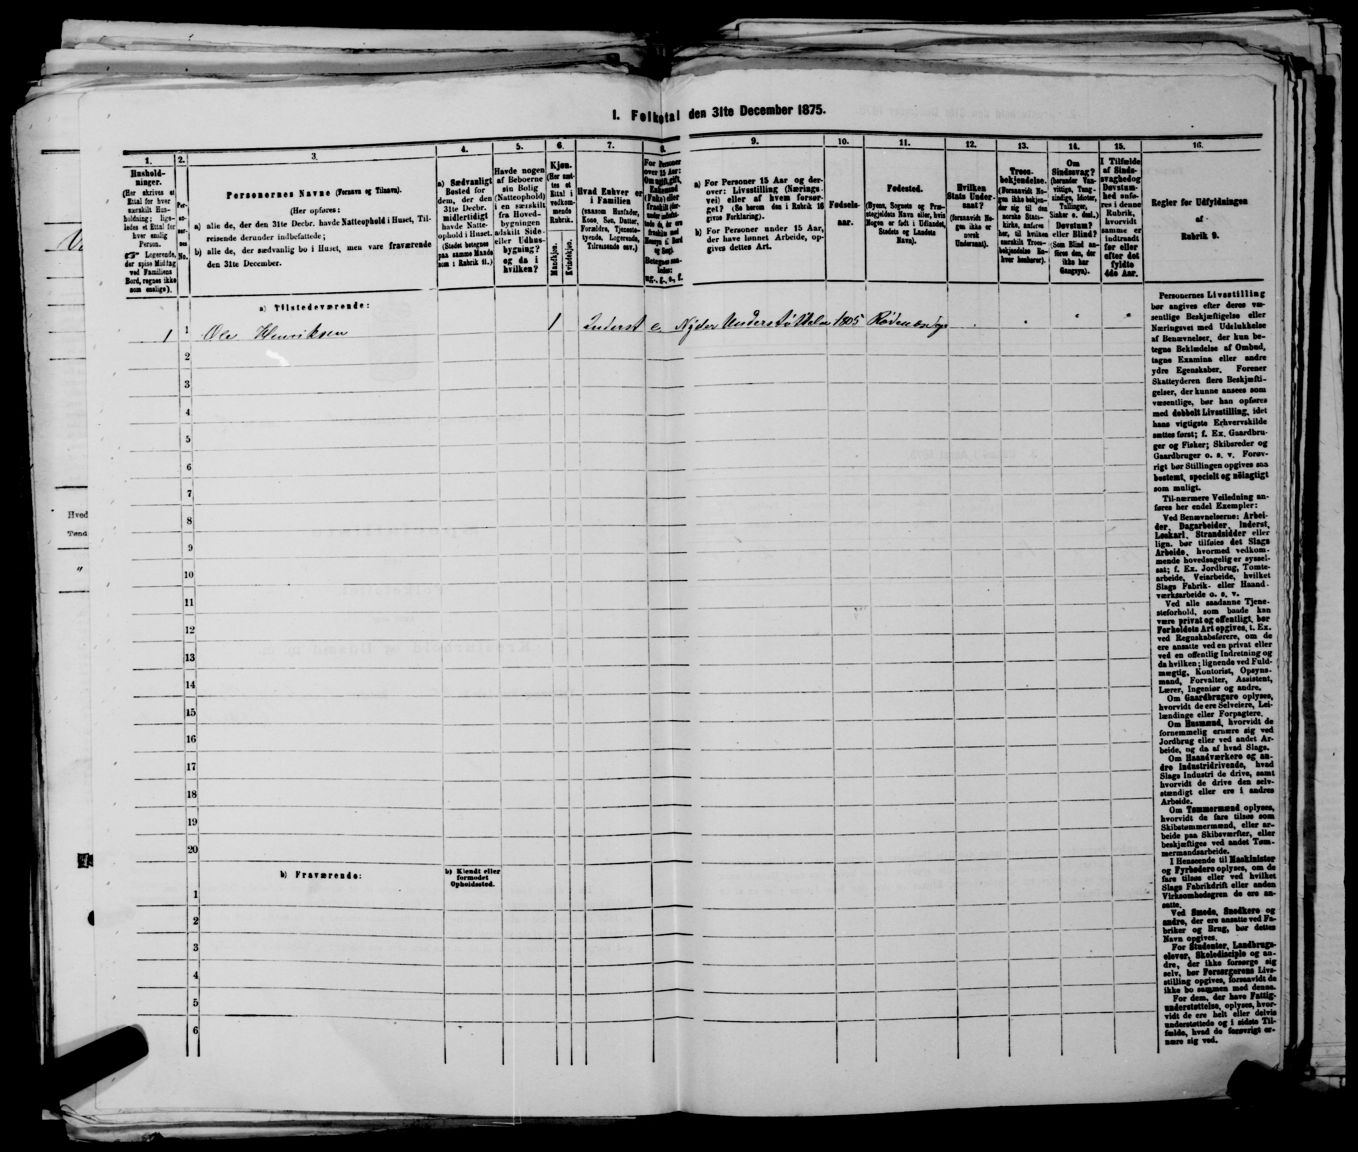 1. Folketal den 31te December 1875.
1.
Hushold-
ninger.
(Her skrives et
Ettal for hver
særskilt Hus-
holdning; lige-
ledes et Ettal for
hver enslig
Person.
☞ Logerende,
der spise Middag
ved Familiens
Bord, regnes ikke
som enslige).
2.
No.
3.
Personernes Navne (Fornavn og Tilnavn).
(Her opføres:
a) alle de, der den 31te Decbr. havde Natteophold i Huset, Til-
reisende derunder indbefattede;
b) alle de, der sædvanlig bo i Huset, men vare fraværende
den 31te December.
4.
a) Sædvanligt
Bosted for
dem, der den
31te Decbr.
midlertidigt
havde Natte-
ophold i Huset.
(Stedet betegnes
paa samme Maade
som i Rubrik 11.)
5.
Havde nogen
af Beboerne
sin Bolig
(Natteophold)
i en særskilt
fra Hoved-
bygningen
adskilt Side-
eller Udhus-
bygning?
og da i
hvilken?
6.
Kjøn.
(Her sæt-
tes et
Ettal i
vedkom-
mende
Rubrik.
Mandkjøn.
Kvindekjøn.
7.
Hvad Enhver er
i Familien
(saasom Husfader,
Kone, Søn, Datter,
Forældre, Tjeneste-
tyende, Logerende,
Tilreisende osv.)
8.
For Personer
over 15 Aar:
Om ugift, gift,
Enkemand
(Enke) eller
fraskilt
ug., g., e., f.
9.
a) For Personer 15 Aar og der-
over: Livsstilling (Nærings-
vei) eller af hvem forsør-
get? (Se herom den i Rubrik 16
givne Forklaring).
b) For Personer under 15 Aar,
der have lønnet Arbeide, op-
gives dettes Art.
10.
Fødsels-
aar.
11.
Fødested.
(Byens, Sognets og Præ-
stegjeldets Navn eller, hvis
Nogen er født i Udlandet,
Stedets og Landets
Navn).
12.
Hvilken
Stats Under-
saat?
(forsaavidt No-
gen ikke er
norsk
Undersaat).
13.
Troes-
bekjendelse.
(Forsaavidt No-
gen ikke bekjen-
der sig til den
norske Stats-
kirke, anføres
her, til hvilken
særskilt Troes-
bekjendelse En-
hver henhører).
14.
Om
Sindssvag?
(herunder Van-
vittige, Tung-
sindige, Idioter,
Tullinger,
Sinker o. desl.)
Døvstum?
eller Blind?
(Som Blind an-
føres den, der
ikke har
Gangsyn).
15.
I Tilfælde
af Sinds-
svaghed og
Døvstum-
hed anfø-
res i denne
Rubrik,
hvorvidt
samme er
indtraadt
før eller
efter det
fyldte
4de Aar.
16.
Regler for Udfyldningen
af
Rubrik 9.
a) Tilstedeværende:
1 1 Ole Henriksen 1 Inderst e. Nyder Understøttelse 1805 " " "
2
3
4
5
6
7
8
9
10
11
12
13
14
15
16
17
18
19
20
b) Fraværende:
b) Kjendt eller
formodet
Opholdssted.
1
2
3
4
5
6
Personernes Livsstilling
bør angives efter deres væ-
sentlige Beskjæftigelse eller
Næringsvei med Udelukkelse
af Benævnelser, der kun be-
tegne Beklædelse af Ombud,
tagne Examina eller andre
ydre Egenskaber. Forener
Skatteyderen flere Beskjæfti-
gelser, der kunne ansees som
væsentlige, bør han opføres
med dobbelt Livsstilling, idet
hans vigtigste Erhvervskilde
sættes først; f. Ex. Gaardbru-
ger og Fisker; Skibsreder og
Gaardbruger o. s. v. Forøv-
rigt bør Stillingen opgives saa
bestemt, specielt og nøiagtigt
som muligt.
Til nærmere Veiledning an-
føres her endel Exempler:
Ved Benævnelserne: Arbei-
der, Dagarbeider, Inderst,
Løskarl, Strandsidder eller
lign. bør tilføies det Slags
Arbeide, hvormed vedkom-
mende hovedsagelig er syssel-
sat; f. Ex. Jordbrug, Tomte-
arbeide, Veiarbeide, hvilket
Slags Fabrik- eller Haand-
værksarbeide o. s. v.
Ved alle saadanne Tjene-
steforhold, som baade kan
være privat og offentligt, bør
Forholdets Art opgives, t. Ex.
ved Regnskabsførere, om de
ere ansatte ved en privat eller
ved en offentlig Indretning og
da hvilken; lignende ved Fuld-
mægtig, Kontorist, Opsyns-
mand, Forvalter, Assistent,
Lærer, Ingeniør og andre.
Om Gaardbrugere oplyses,
hvorvidt de ere Selveiere, Lei-
lændinge eller Forpagtere.
Om Husmænd, hvorvidt de
fornemmelig ernære sig ved
Jordbrug eller ved andet Ar-
beide, og da af hvad Slags.
Om Haandværkere og an-
dre Industridrivende, hvad
Slags Industri de drive, samt
hvorvidt de drive den selv-
stændigt eller ere i andres
Arbeide.
Om Tømmermænd oplyses,
hvorvidt de fare tilsøs som
Skibstømmermænd, eller ar-
beide paa Skibsværfter, eller
beskjæftiges ved andet Tøm-
mermandsarbeide.
I Henseende til Maskinister
og Fyrbødere oplyses, om de
fare tilsøs eller ved hvilket
Slags Fabrikdrift eller anden
Virksomhedsgren de ere an-
satte.
Ved Smede, Snedkere og
andre, der ere ansatte ved Fa-
briker og Brug, bør dettes
Navn opgives.
For Studenter, Landbrugs-
elever, Skoledisciple og an-
dre, der ikke forsørge sig
selv, bør Forsørgerens Livs-
stilling opgives, forsaavidt de
ikke bo sammen med denne.
For dem, der have Fattig-
understøttelse, oplyses, hvor-
vidt de ere helt eller delvis
understøttede og i sidste Til-
fælde, hvad de forøvrigt er-
nære sig ved.
Hved
Tønd
"